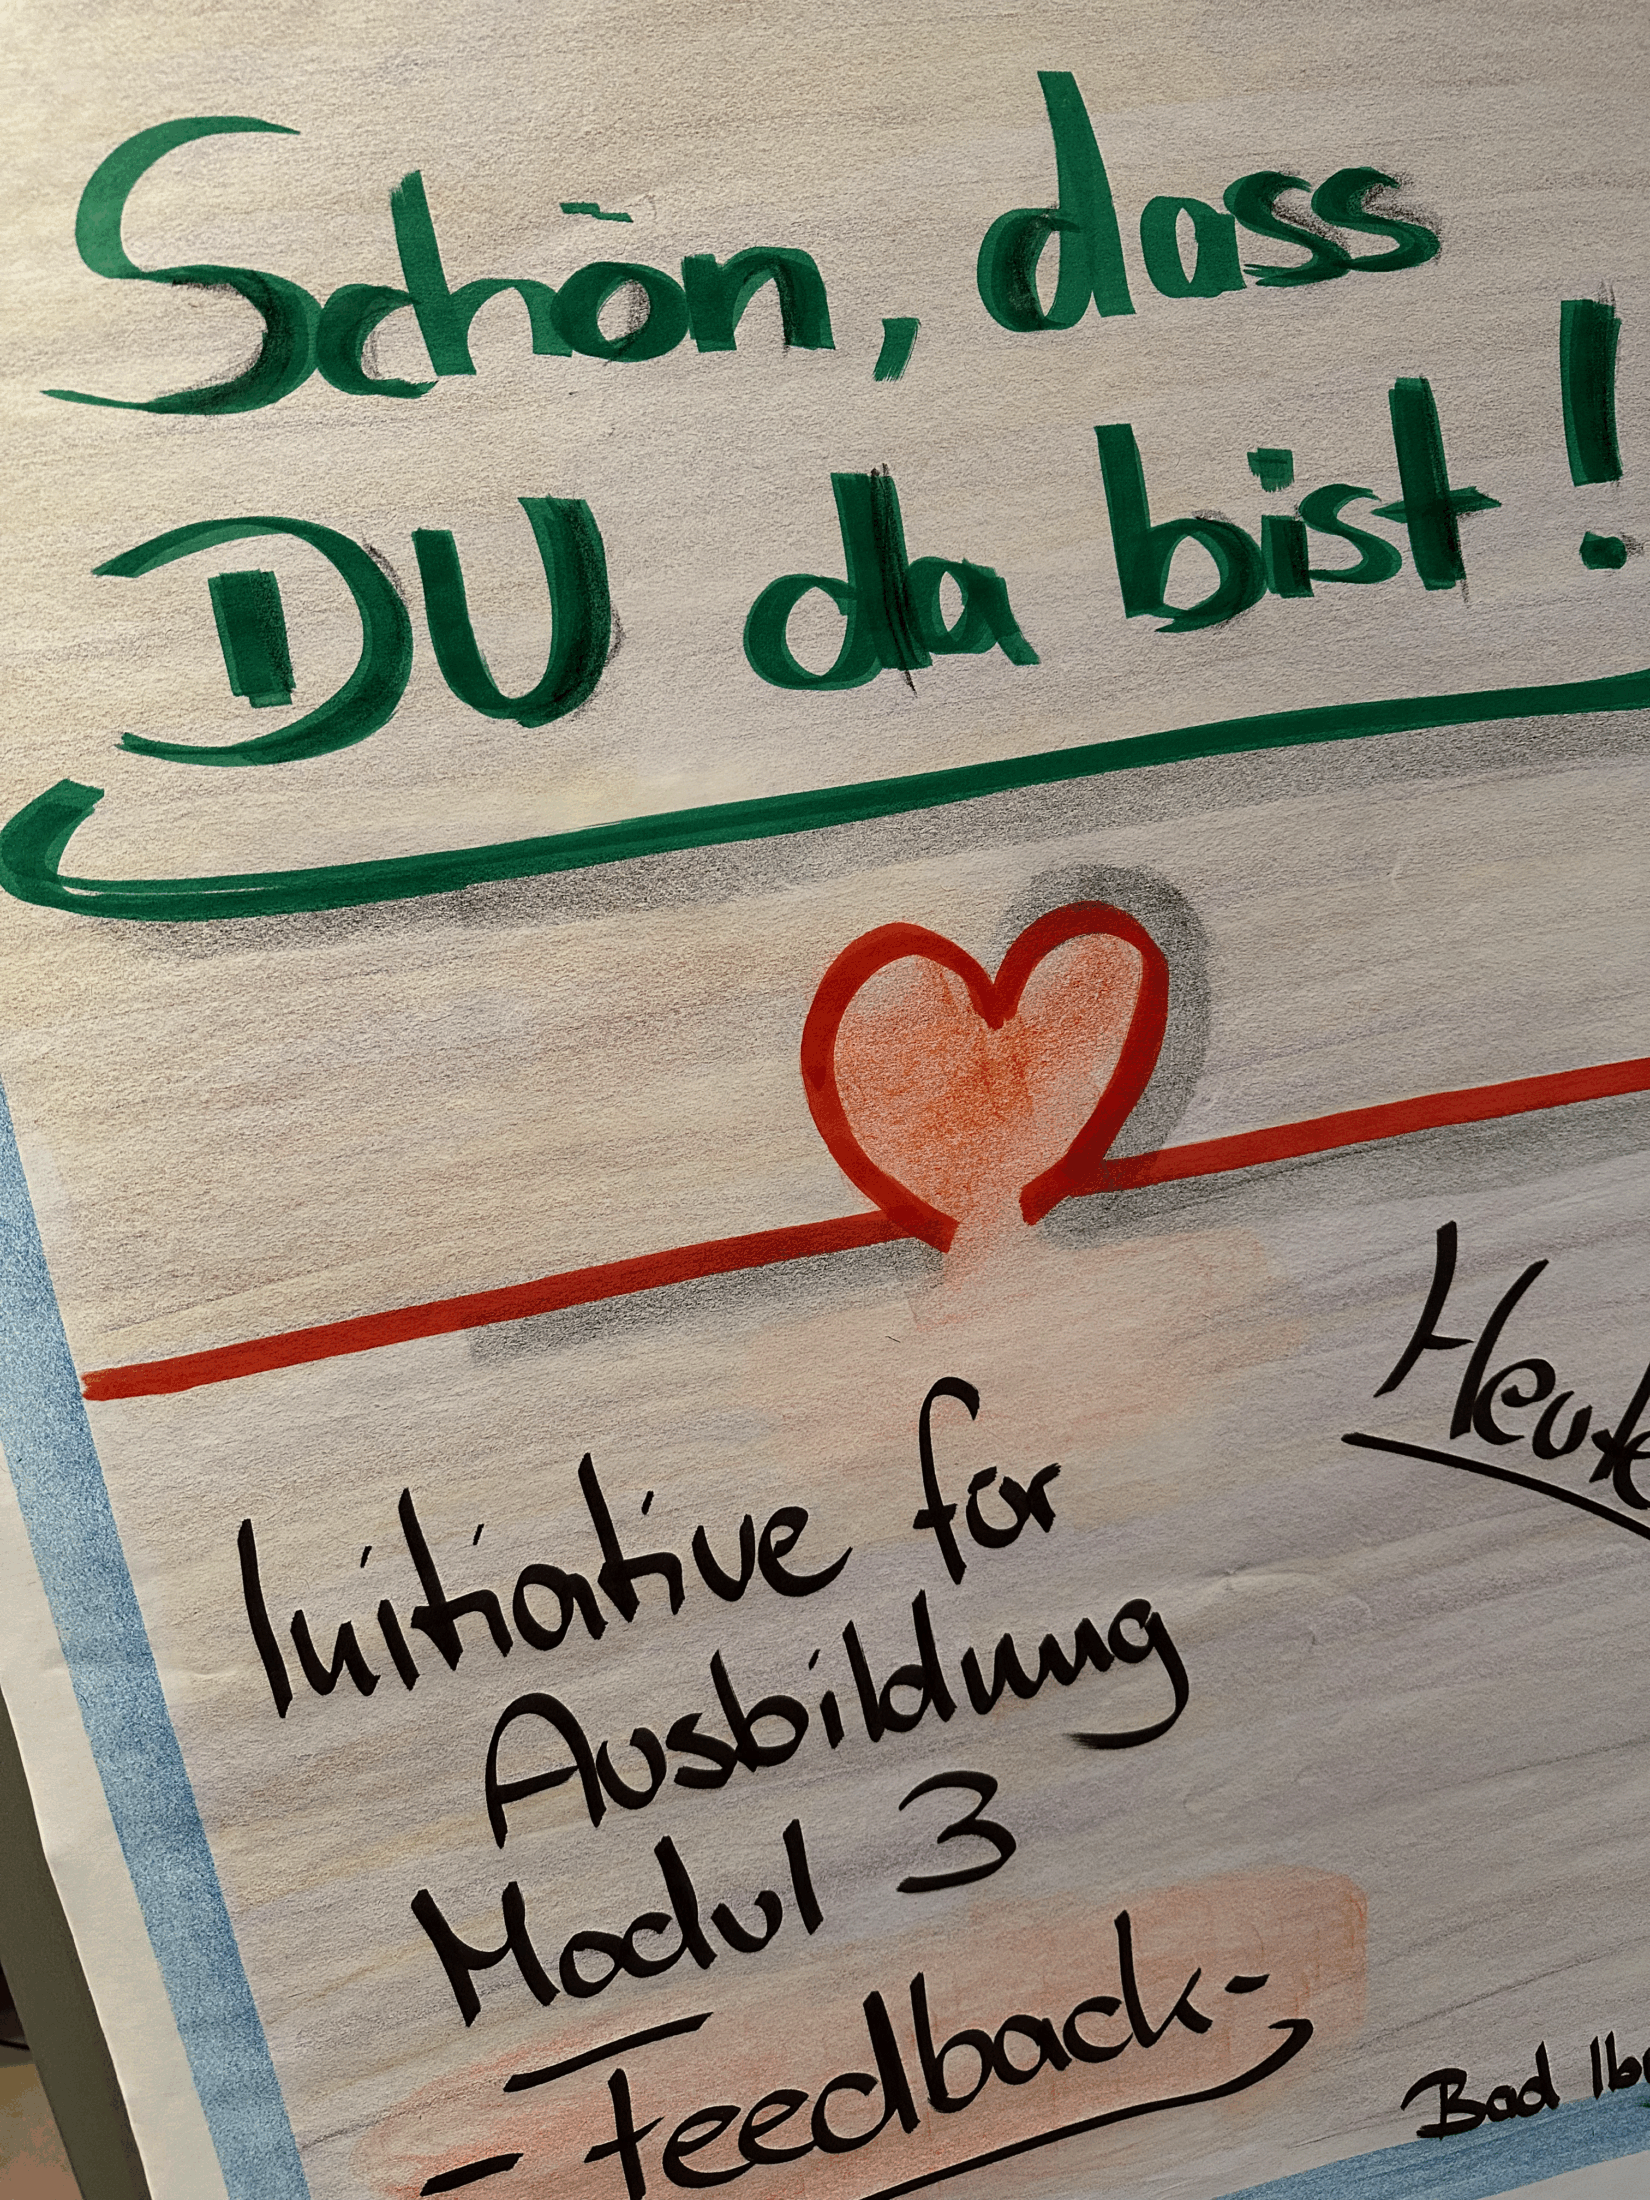 Schön, dass
DU da bist!
Heute
Initiative für
Ausbildung
Modul 3
- Feedback -
Bad